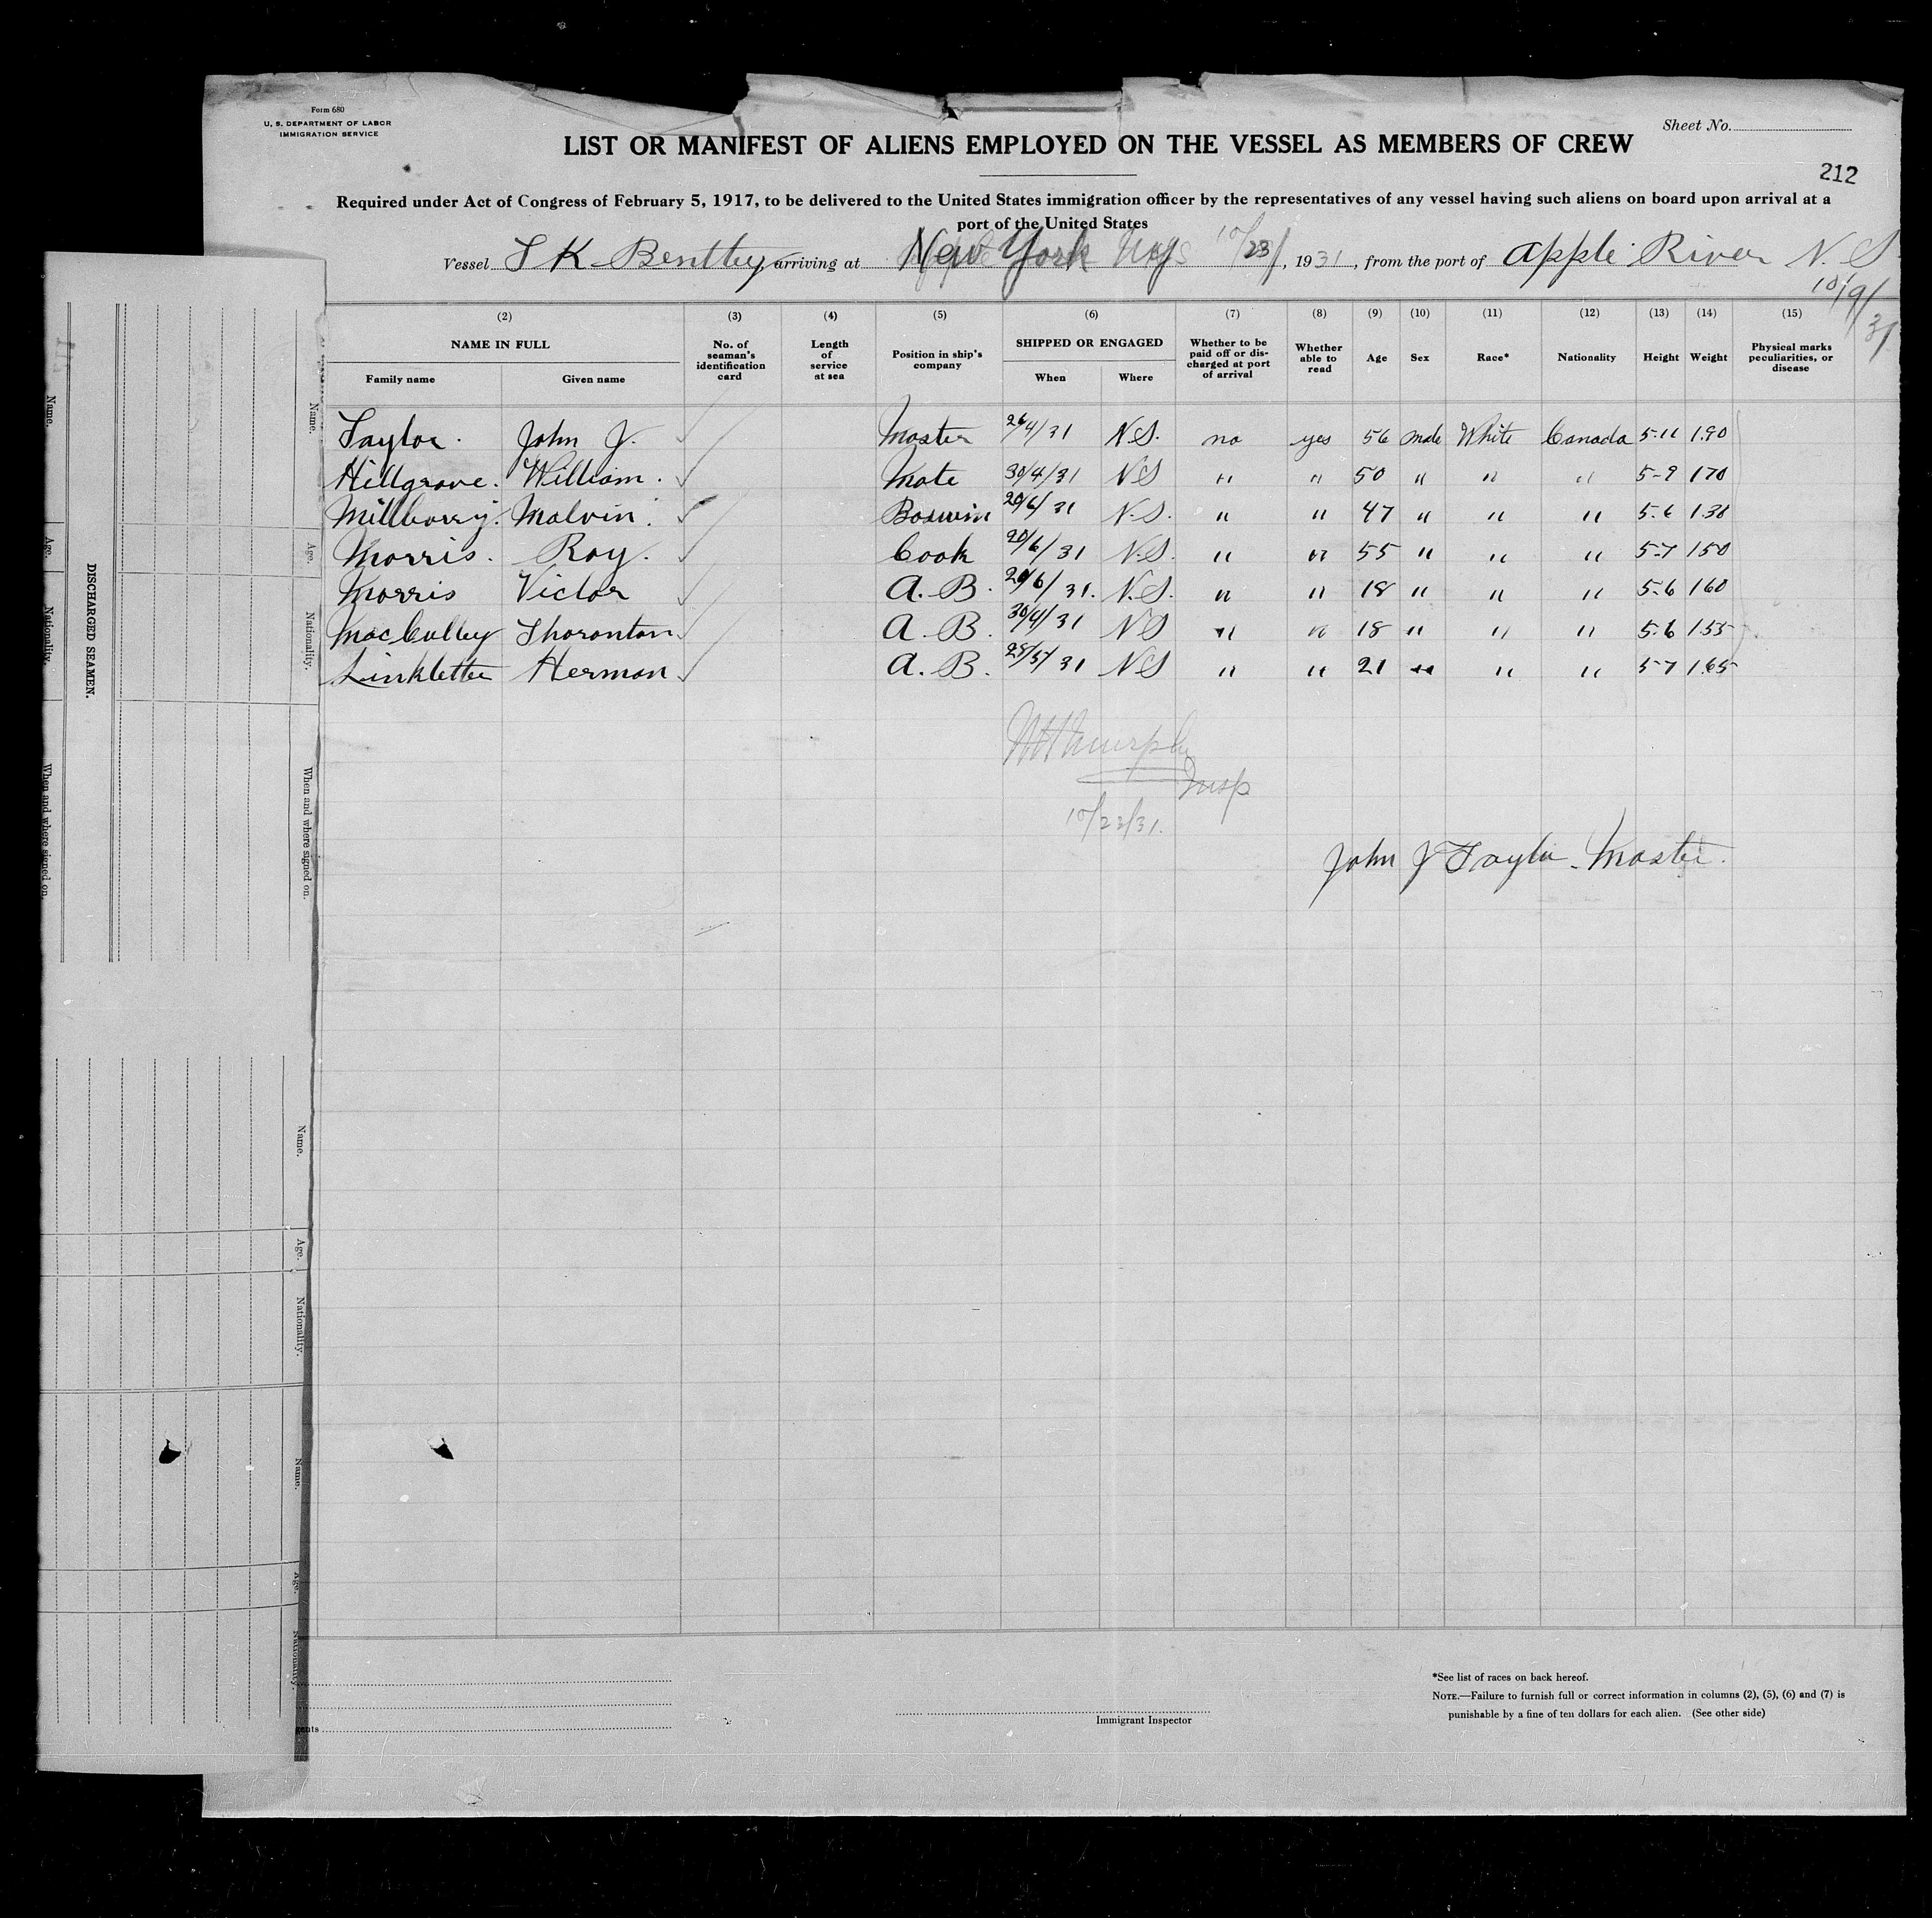 Form 680
U. S. DEPARTMENT OF LABOR
IMMIGRATION SERVICE
Sheet No.
LIST OR MANIFEST OF ALIENS EMPLOYED ON THE VESSEL AS MEMBERS OF CREW
212
Required under Act of Congress of February 5, 1917, to be delivered to the United States immigration officer by the representatives of any vessel having such aliens on board upon arrival at a
port of the United States
Vessel S K Bentley, arriving at New York 10/23/, 1931, from the port of Apple River N. S.
10/9/31
(2) (3) (4) (5) (6) (7) (8) (9) (10) (11) (12) (13) (14) (15)
NAME IN FULL No. of seaman's identification card Length of service at sea Position in ship's company SHIPPED OR ENGAGED Whether to be paid off or discharged at port of arrival Whether able to read Age Sex Race* Nationality Height Weight Physical marks peculiarities, or disease
Family name Given name When Where
Taylor. John J. Master 26/4/31 N.S. no yes 56 male White Canada 5-11 190
Hillgrove. William. Mate 30/4/31 NS " " 50 " " " 5-9 170
Millberry. Malvin. Boswin 20/6/31 N.S. " " 47 " " " 5.6 138
Morris. Roy. Cook 20/6/31 N.S. " " 55 " " " 5-7 150
Morris Victor A. B. 20/6/31. N.S. " " 18 " " " 5-6 160
MacCulley Thoronton A. B. 30/4/31 NS " " 18 " " " 5.6 155
Linkletter Herman A. B. 28/5/31 NS " " 21 " " " 5-7 165
Murphy
Insp
10/23/31.
John J Taylor. Master.
DISCHARGED SEAMEN.
Name.
Age.
Nationality.
When and where signed on.
Name.
Age.
Nationality.
When and where signed on.
Name.
Age.
Nationality.
Name.
Age.
Nationality.
gents
Immigrant Inspector
*See list of races on back hereof.
NOTE.—Failure to furnish full or correct information in columns (2), (5), (6) and (7) is
punishable by a fine of ten dollars for each alien. (See other side)